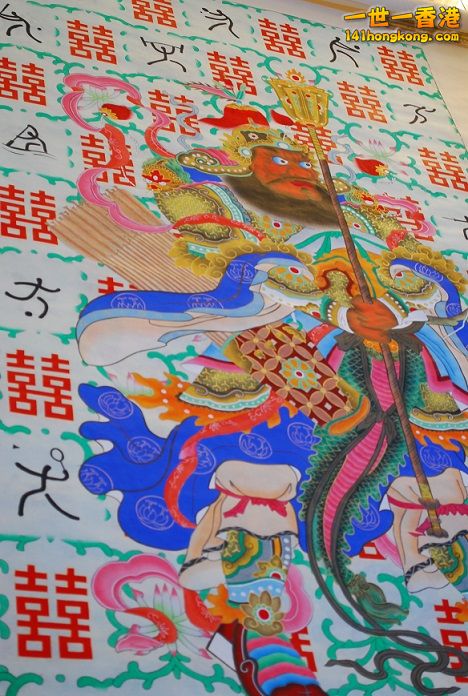 一世一香港
141hongkong.com
囍 囍 囍
囍 囍 囍 囍
囍 囍 囍
囍
囍
囍 囍